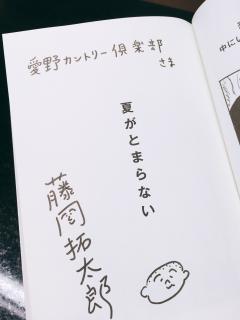 愛野カントリー倶楽部
さま
夏がとまらない
藤岡拓太郎
中にい